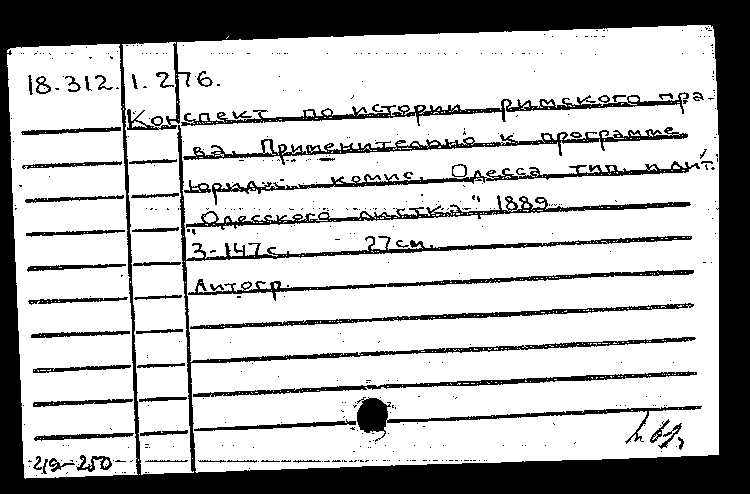 18.312.1.276.
Конспект по истории римского пра
ва. Применительно к программе
юридич. комис. Одесса, тип. и лит.
"Одесского листка", 1889
3-147с. 27см.
Литогр.